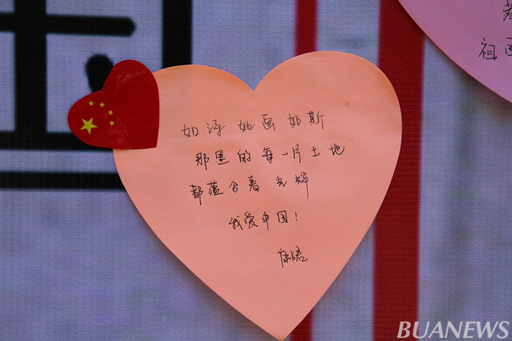 如诗如画如斯
那里的每一片土地
都蕴含着光辉
我爱中国!
祖国
BUANEWS